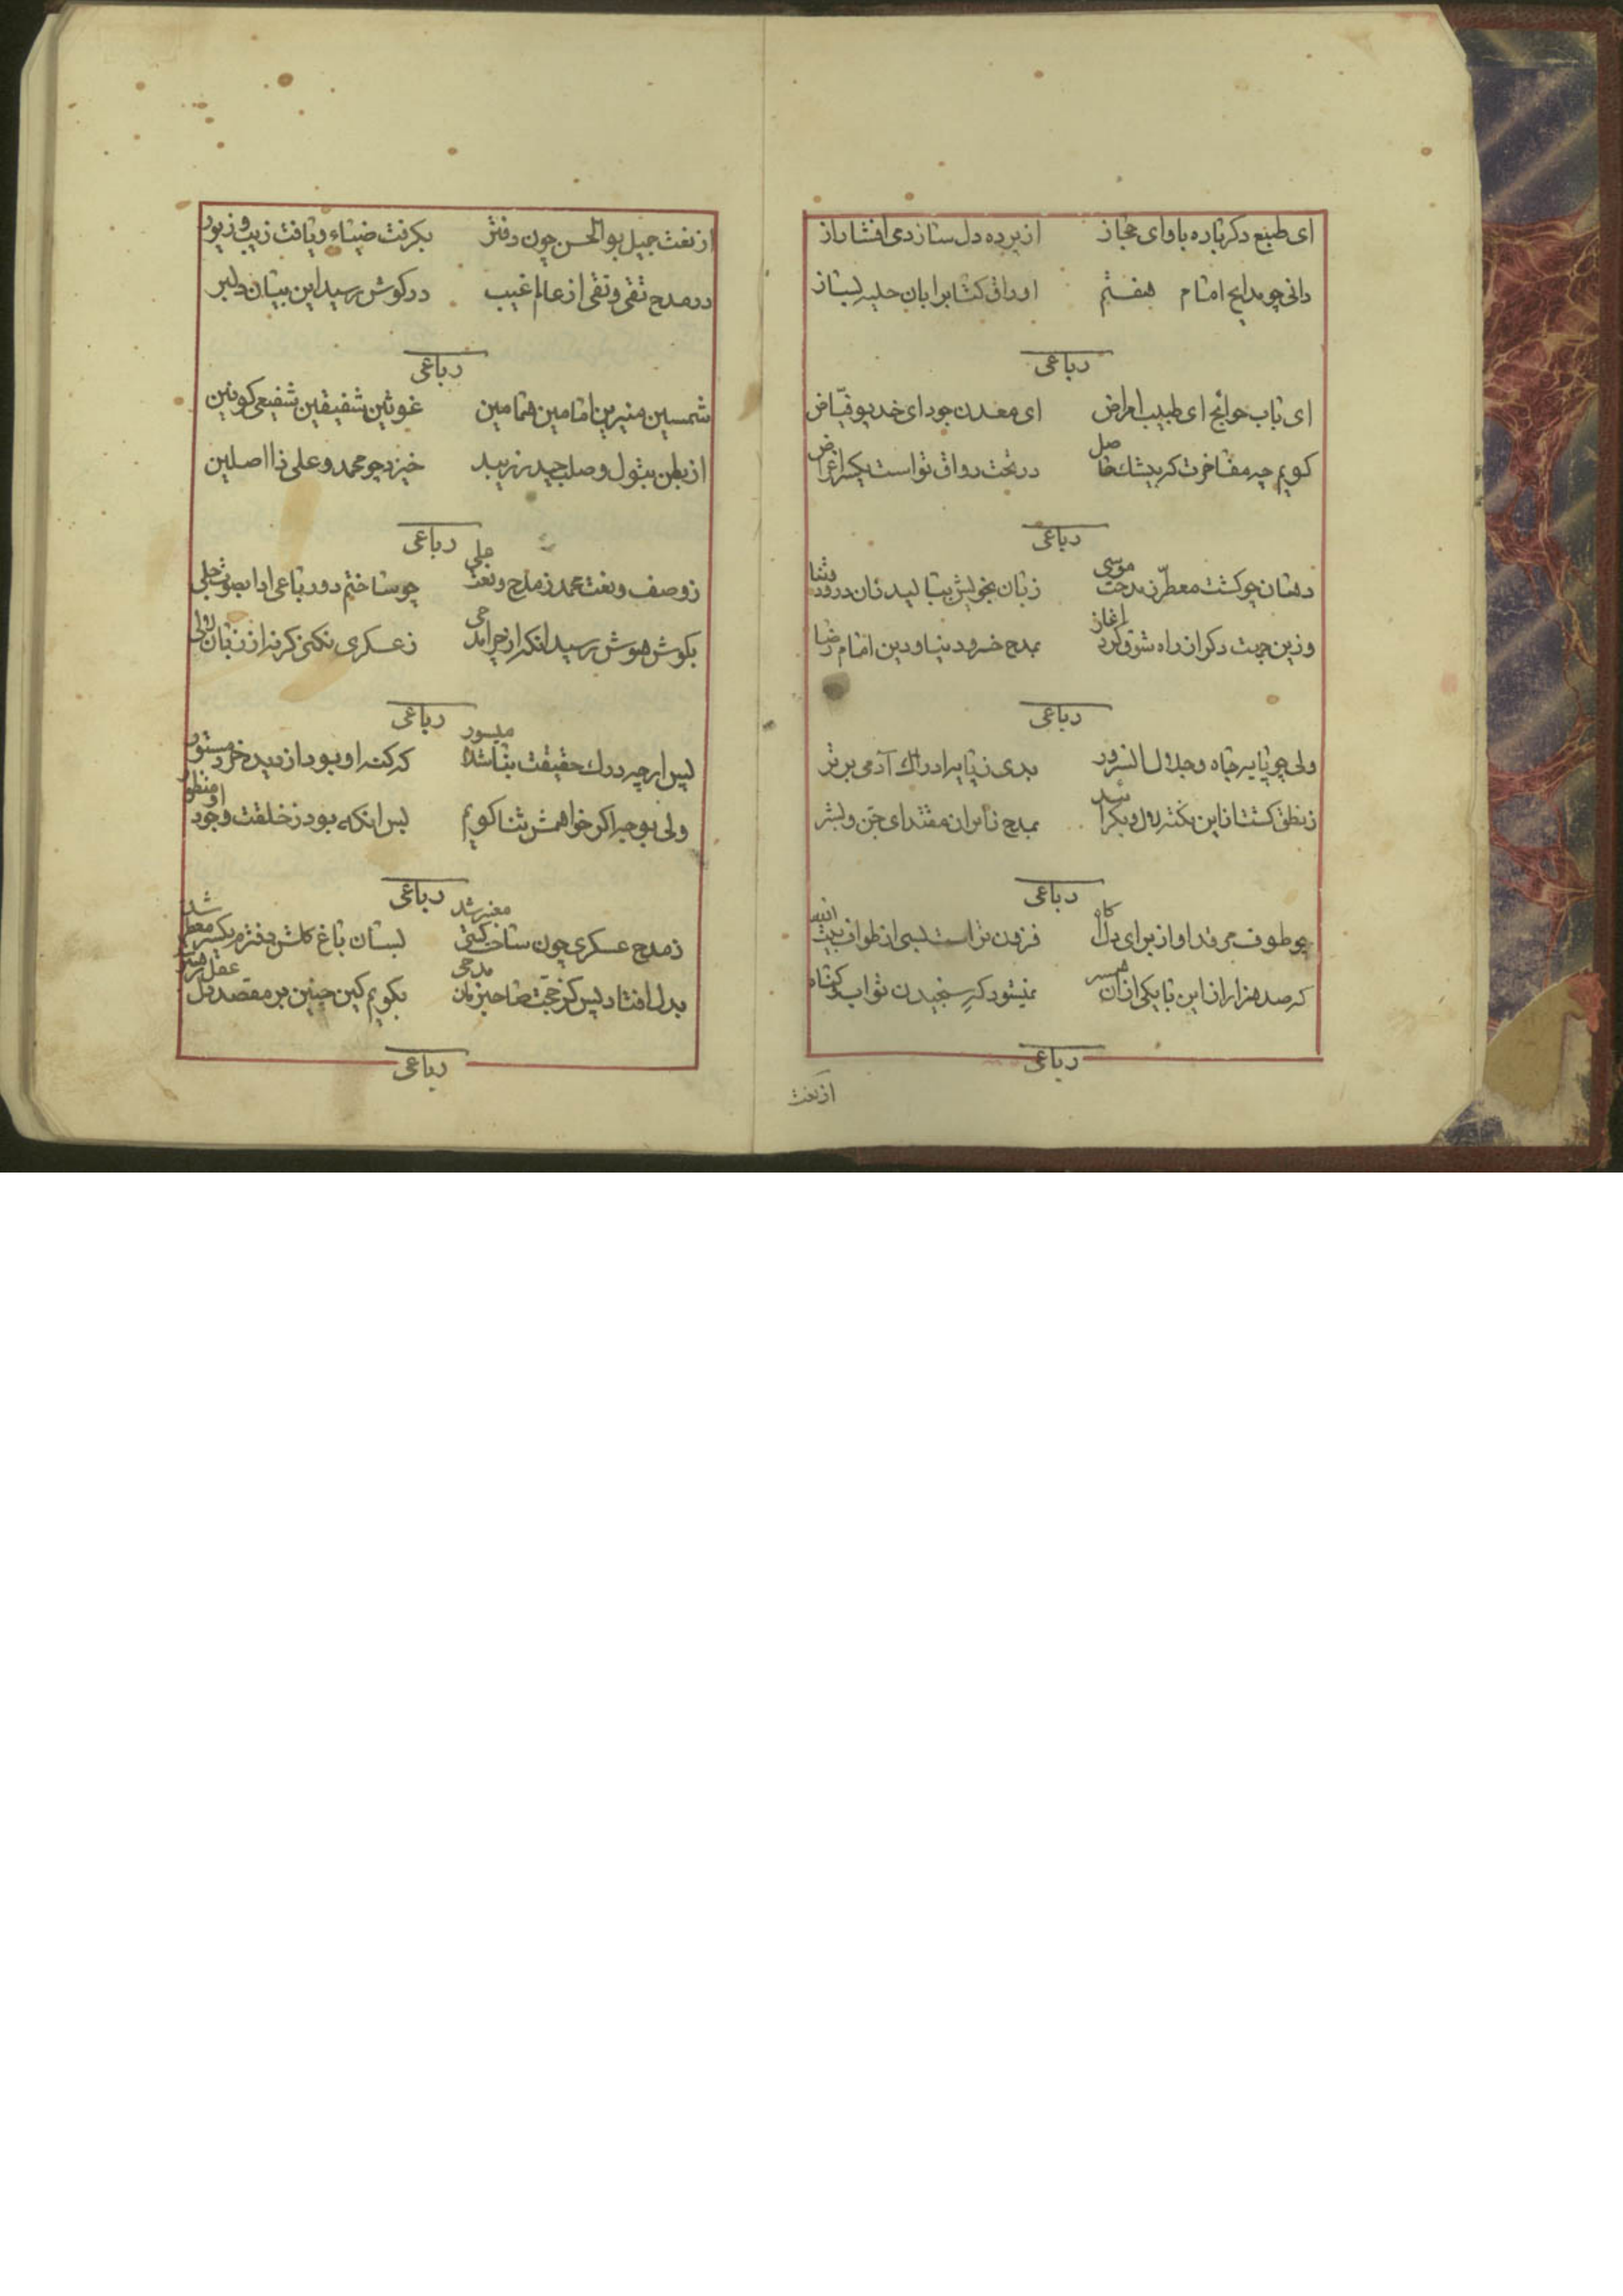 ای طبع دکر باره باوای حجاز از پرده دل ساز دمی افشا راز
دانی چو مدایح امام هفتم اوراق کتابرا بان حلیه بساز
رباعی
ای باب حوایج ای طبیب امراض ای معدن جود ای خدیو فیّاض
کویم چه مفاخرت که بیشک حاصل در تحت رواق تو است یکسر اغراض
رباعی
دهان چو کشت معطر ز مدحت موسی زبان بخویش ببالید زان درود و ثنا
وزین جهت دکر از راه شوق کرد اغاز بمدح خسرو دنیا و دین امام رضا
رباعی
ولی چو پایه جاه و جلال انسرور بدی ز پایه ادراک آدمی برتر
ز نطق کشت ازین نکته دل دیکر شد بمدح زایران مقتدای جن و بشر
رباعی
چو طوف مرقد او از برای دل کاه فزون تر است بسی از طواف بیت
که صد هزار از این با یکی از ان همسر نمیشود که سنجیدن ثواب
رباعی
از نعت
از نعت جمیل بوالحسن چون دفتر بکرفت ضیاء و یافت زیب و زیور
در مدح تقی و نقی از عالم غیب در کوش رسید این بیان دلبر
رباعی
شمسین منیرین امامین همامین غوثین شفیقین شفیعی کونین
از بطن بتول و صلب حیدر زیبد خیزد چو محمد و علی ذا اصلین
رباعی
ز وصف و نعت محمد ز مدح و نعت علی چو ساختم دو رباعی ادا بصوت جلی
بکوش هوش رسید انکه از خرامد ز عسکری نکنی کر نه از زبان ولی
رباعی
پس ارچه درک حقیقت بناشدا میسور که کنه او بود از دید خرد مستور
ولی بوجبر اکر خواهمش ثنا کویم بس انکه بود ز خلقت وجود او منظور
رباعی
ز مدح عسکری چون ساخت کیتی معنبر شد بسان باغ کلشن دفترم یکسر معطر شد
بدل افتاد پس کز حجت صاحبزمان مدحی بکویم کین چنین بر مقصد دل عقل رهبر
رباعی